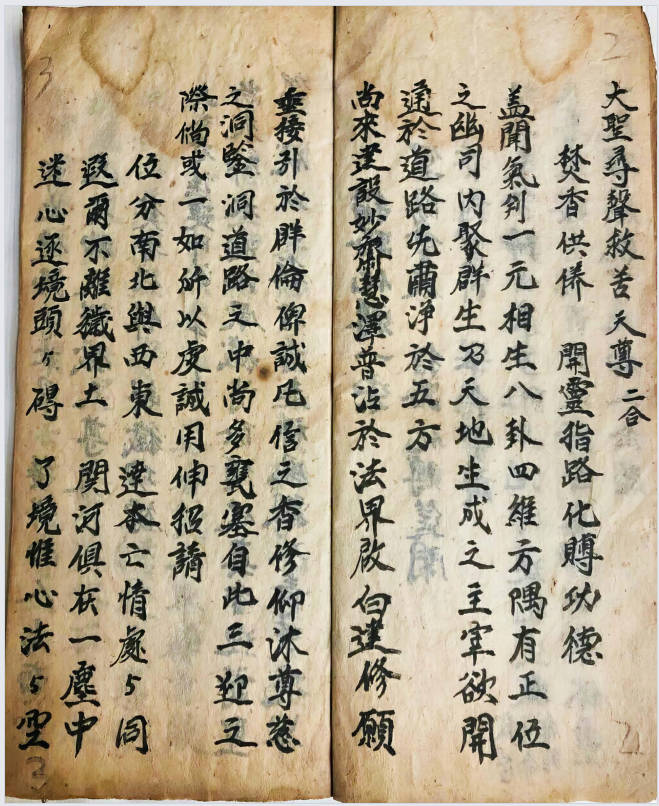 大聖尋聲救苦天尊 二合
焚香供養 開靈指路化賻功德
盖聞氣列一元相生八卦四維方隅有正位
之幽司内聚群生乃天地生成之主宰欲開
通於道路先蕳淨於五方
尚來建設妙齋慧澤普沾於法界啟白建修願
垂接引於群倫俾誠凡信之香修仰沐尊慈
之洞鑒洞道路之中尚多甕塞自此三迎之
際倘或一如所以虔誠用伸招請
位分南北與西東 達本亡情處々同
遐爾不離纖界土 関河俱在一塵中
迷心逐境頭々碍 了境惟心法々空
2
2
3
3